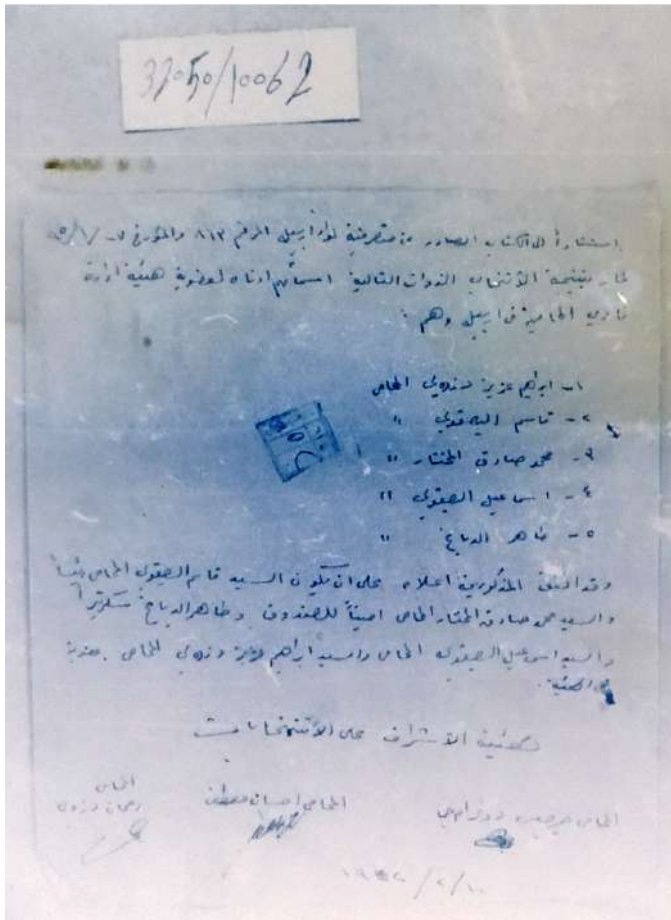 32050/10062
استنادا الى الكتاب الصادر من متصرفية لواء اربيل المرقم ٨١٣ والمؤرخ
نتيجة الأنتخاب الذوات التالية اسمائهم ادناه لعضوية هيئة ادارة
المحامين في اربيل وهم :
١- ابراهيم عزيز دزەيي المحامي
٢- قاسم اليعقوبي "
٣- محمد صادق المختار "
٤- اسماعيل اليعقوبي "
٥- طاهر الدباغ "
وقد اتفق المذكورين اعلاه على ان يكون السيد قاسم اليعقوبي المحامي رئيساً
والسيد محمد صادق المختار المحامي اميناً للصندوق وطاهر الدباغ سكرتيراً
والسيد اسماعيل اليعقوبي المحامي والسيد ابراهيم عزيز دزەيي المحامي بعضوية
الهيئة.
الأشراف على الأنتخابات
المحامي المحامي احسان المحامي